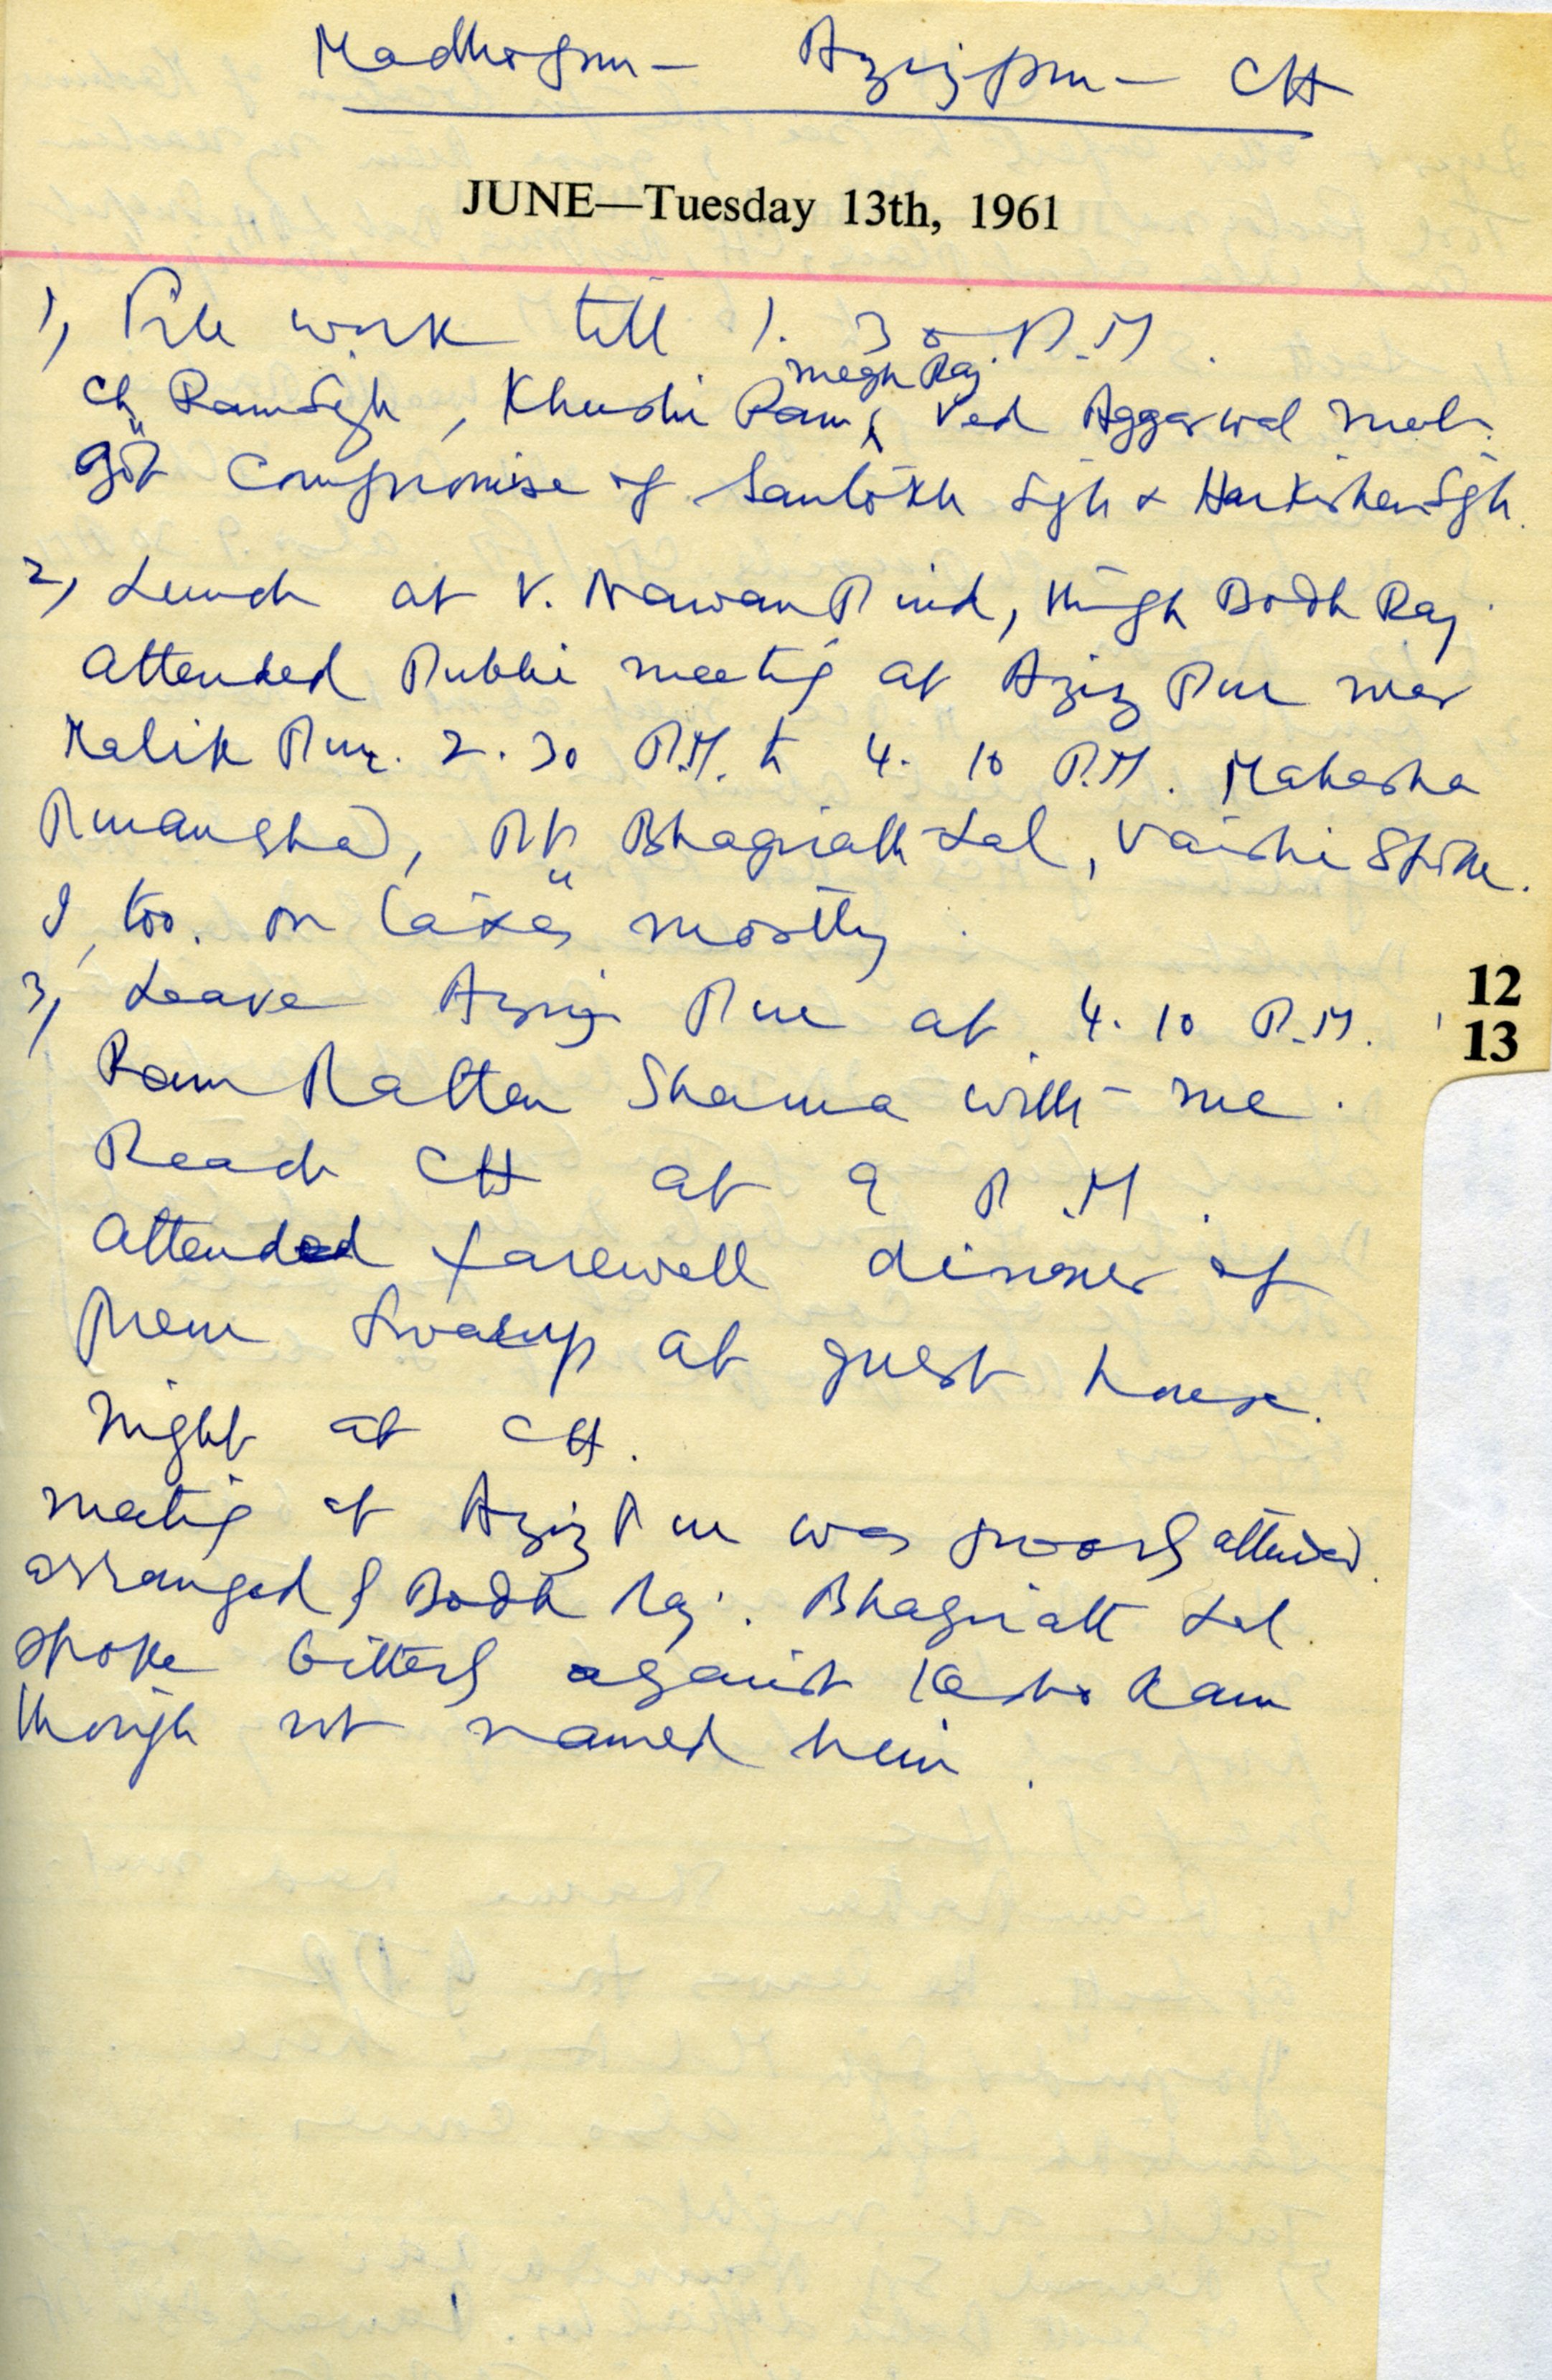 Madhopur - Azizpur - CH
JUNE—Tuesday 13th, 1961
1, File work till 1.30 P.M.
Megh Raj
Ch Ram Sgh, Khushi Ram, Ved Aggarwal met.
got compromise of Santokh Sgh & Harkishen Sgh.
2, Lunch at V. Nawan Pind, Bodh Raj.
attended Public meeting at Aziz Pur near
Malik Pur. 2.30 P.M. to 4.10 P.M. Mahasha
Pt Bhagirath Lal, Vaishi spoke.
I, too. on taxes mostly.
3, Leave Aziz Pur at 4.10 P.M.
12
13
Ram Rattan Sharma with me.
Reach CH at 9 P.M.
attended farewell dinner of
Prem Swarup at guest house.
Night at CH.
meeting at Aziz Pur was poorly attended.
arranged by Bodh Raj. Bhagirath Lal
spoke bitterly against Ram
though not named him.